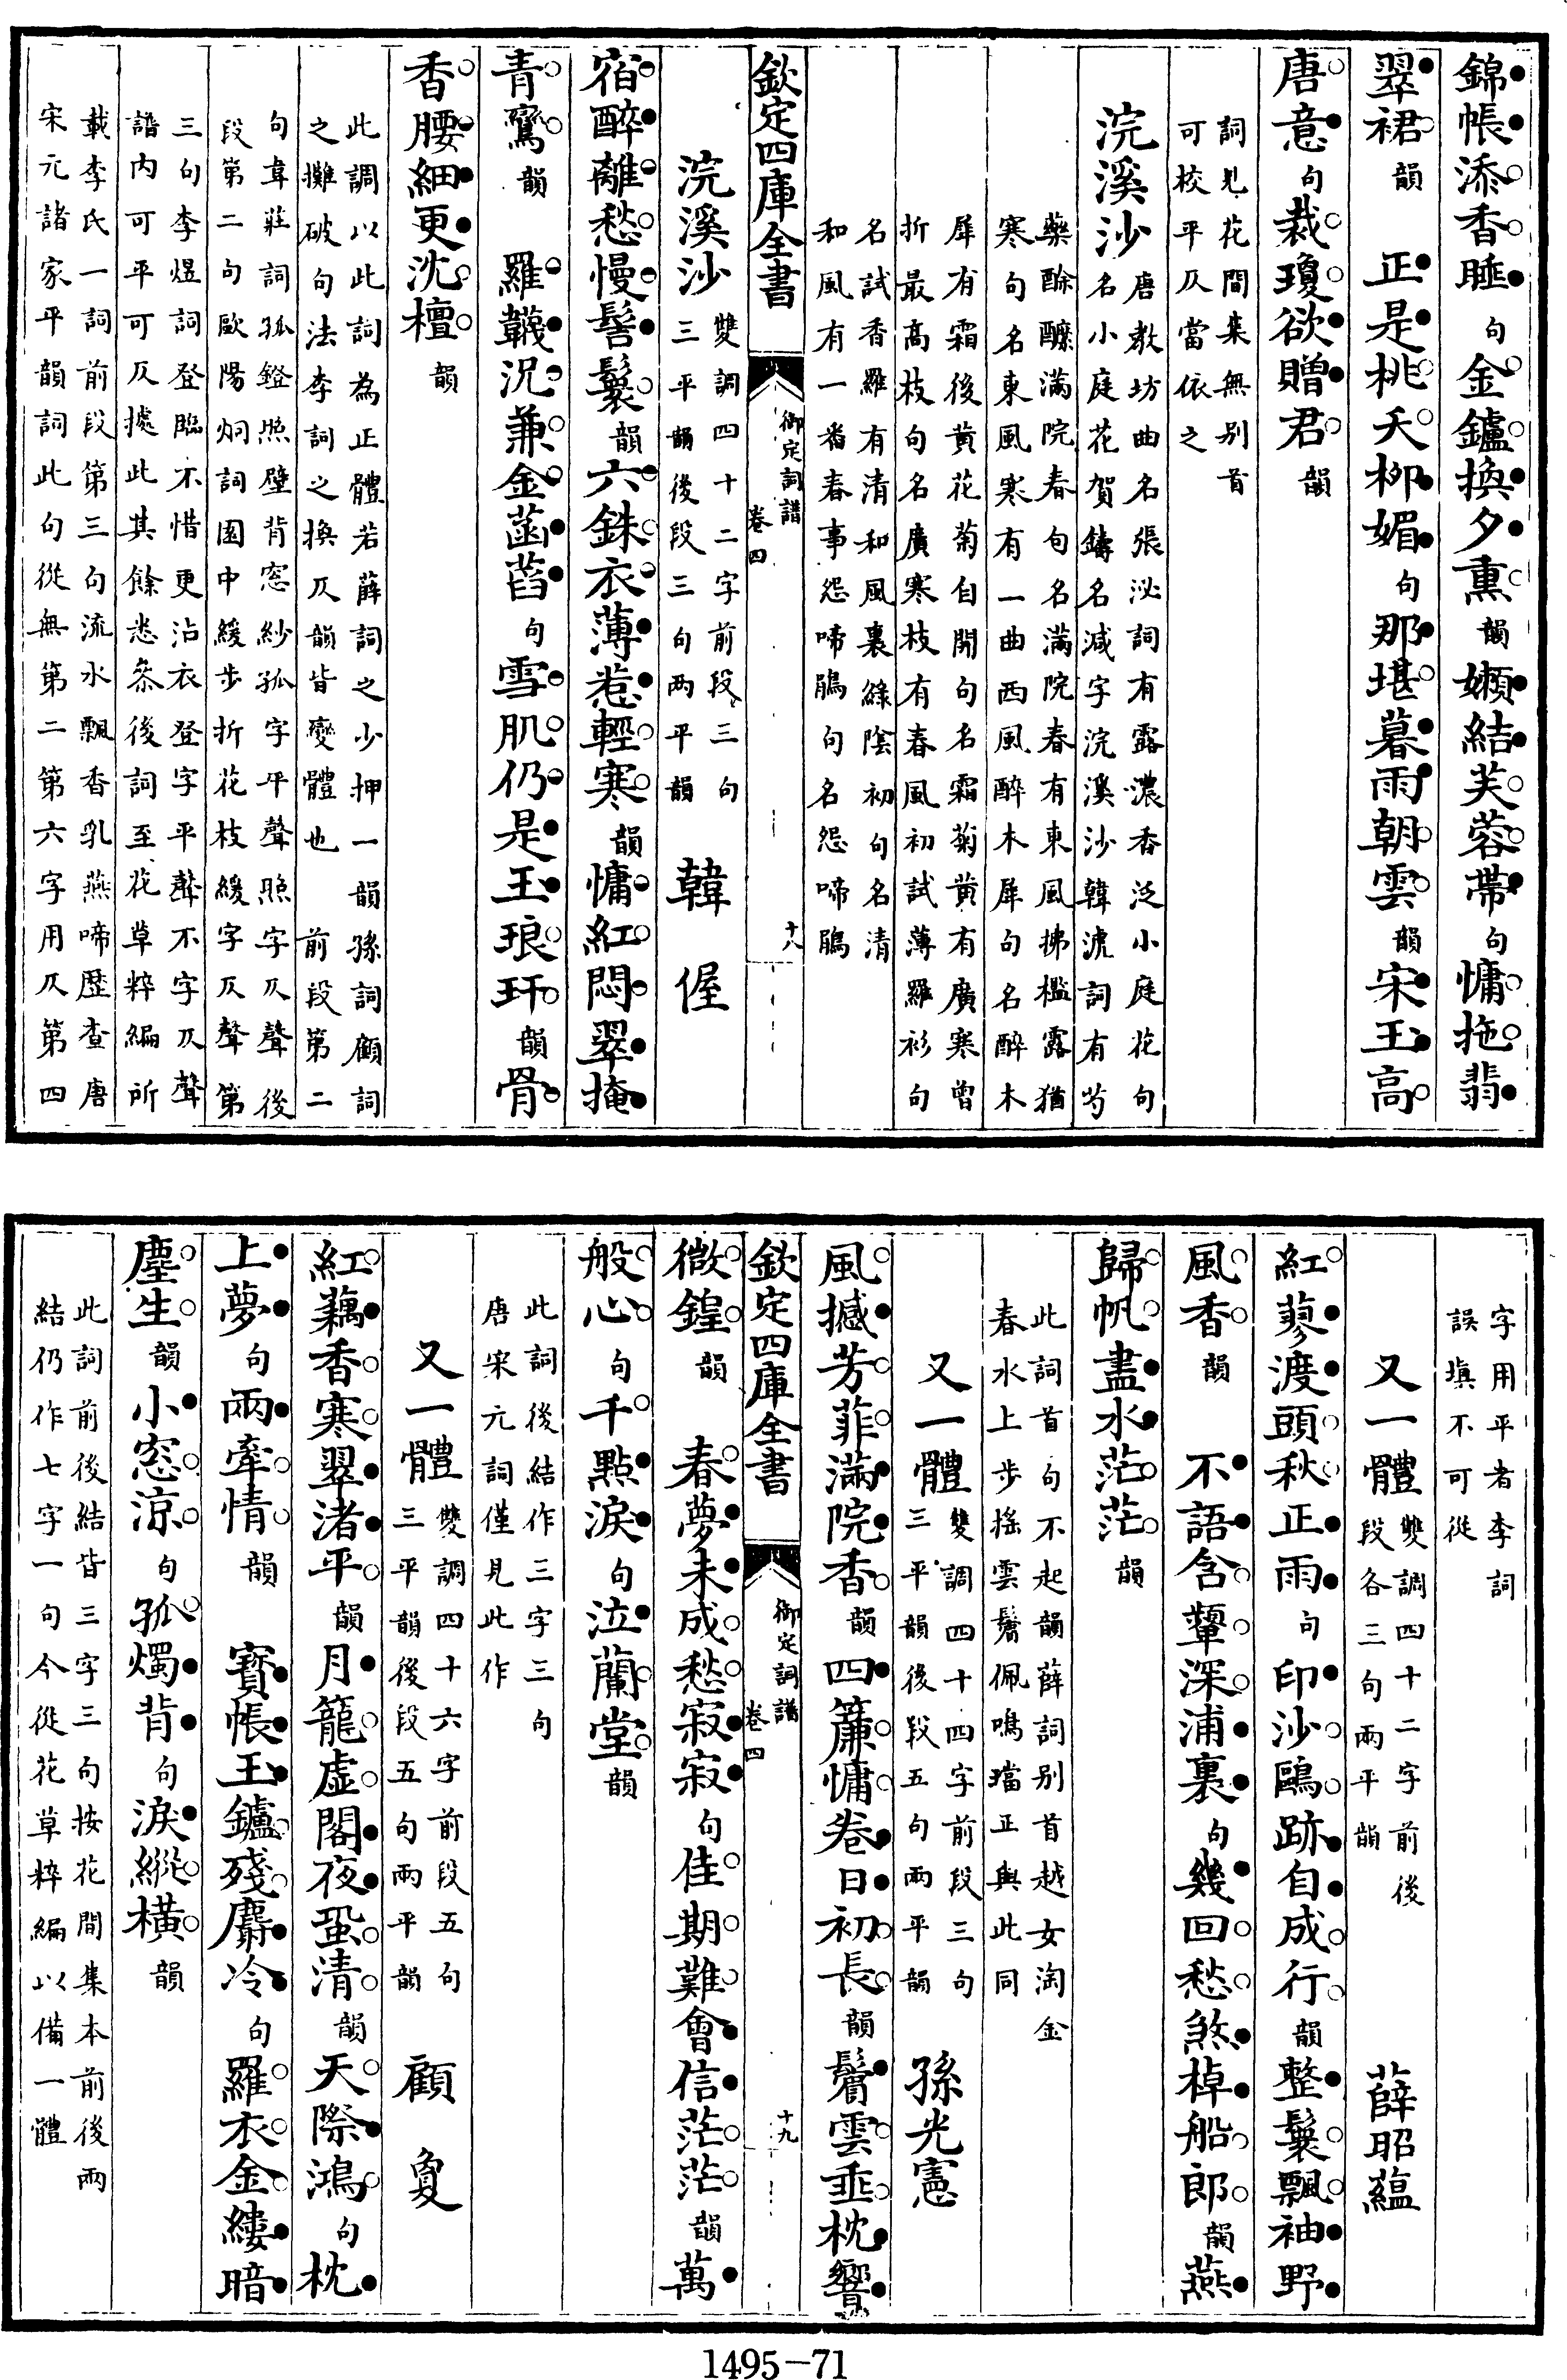 錦帳添香睡句金鑪換夕熏韻嬾結芙蓉帶句慵拖翡
翠裙韻　正是桃夭柳媚句那堪暮雨朝雲韻宋玉高
唐意句裁瓊欲贈君韻
詞見花間集無别首
可校平仄當依之
浣溪沙
唐教坊曲名張泌詞有露濃香泛小庭花句
名小庭花賀鑄名減字浣溪沙韓淲詞有芍
藥酴醾滿院春句名滿院春有東風拂檻露猶
寒句名東風寒有一曲西風醉木犀句名醉木
犀有霜後黃花菊自開句名霜菊黃有廣寒曾
折最高枝句名廣寒枝有春風初試薄羅衫句
名試香羅有清和風裏綠陰初句名清
和風有一番春事怨啼鵑句名怨啼鵑
欽定四庫全書
御定詞譜
卷四
十八
浣溪沙
雙調四十二字前段三句
三平韻後段三句兩平韻
韓偓
宿醉離愁慢髻鬟韻六銖衣薄惹輕寒韻慵紅悶翠掩
青鸞韻　羅韈況兼金菡萏句雪肌仍是玉琅玕韻骨
香腰細更沈檀韻
此調以此詞為正體若薛詞之少押一韻孫詞顧詞
之攤破句法李詞之換仄韻皆變體也　前段第二
句韋莊詞孤鐙照壁背窓紗孤字平聲照字仄聲後
段第二句歐陽炯詞園中緩步折花枝緩字仄聲第
三句李煜詞登臨不惜更沾衣登字平聲不字仄聲
譜内可平可仄據此其餘悉叅後詞至花草粹編所
載李氏一詞前段第三句流水飄香乳燕啼歷查唐
宋元諸家平韻詞此句從無第二第六字用仄第四
字用平者李詞
誤填不可從
又一體
雙調四十二字前後
段各三句兩平韻
薛昭蘊
紅蓼渡頭秋正雨句印沙鷗跡自成行韻整鬟飄袖野
風香韻　不語含顰深浦裏句幾回愁煞棹船郎韻燕
歸帆盡水茫茫韻
此詞首句不起韻薛詞别首越女淘金
春水上步搖雲鬢佩鳴璫正與此同
又一體
雙調四十四字前段三句
三平韻後段五句兩平韻
孫光憲
風撼芳菲滿院香韻四簾慵卷日初長韻鬢雲垂枕響
欽定四庫全書
御定詞譜
卷四
十九
微鍠韻　春夢未成愁寂寂句佳期難會信茫茫韻萬
般心句千點淚句泣蘭堂韻
此詞後結作三字三句
唐宋元詞僅見此作
又一體
雙調四十六字前段五句
三平韻後段五句兩平韻
顧敻
紅藕香寒翠渚平韻月籠虛閣夜蛩清韻天際鴻句枕
上夢句兩牽情韻　寶帳玉鑪殘麝冷句羅衣金縷暗
塵生韻小窓涼句孤燭背句淚縱橫韻
此詞前後結皆三字三句按花間集本前後兩
結仍作七字一句今從花草粹編以備一體
1495-71